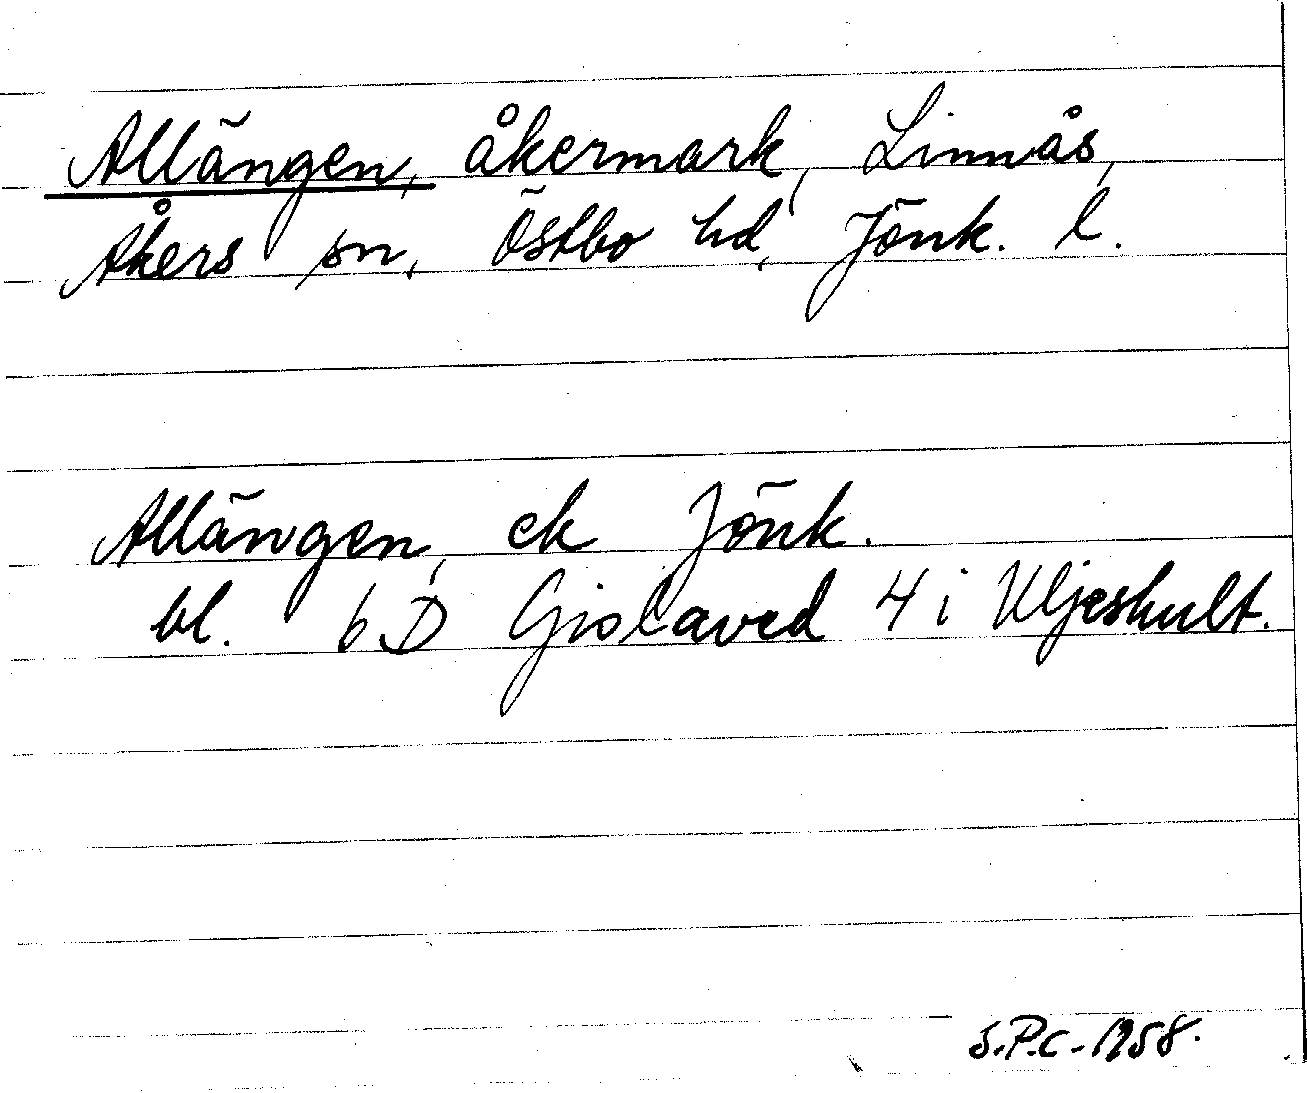 Allängen, åkermark, Linnås,
Åkers sn, Östbo hd, Jönk. l.
Allängen, ek Jönk.
bl. 6 D Gislaved 4 i Uljeshult.
S.P.C. 1958.